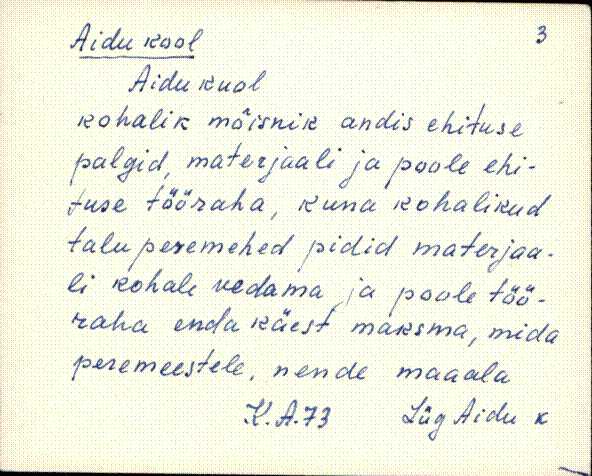 Aidu kool
3
Aidu kuol
kohalik mõisnik andis ehituse
palgid, materjaali ja poole ehi-
tuse tööraha, kuna kohalikud
talu peremehed pidid materjaa-
li kohale vedama, ja poole töö-
raha enda käest maksma, mida
peremeestele, nende maaala
K.A.73 Lüg Aidu k